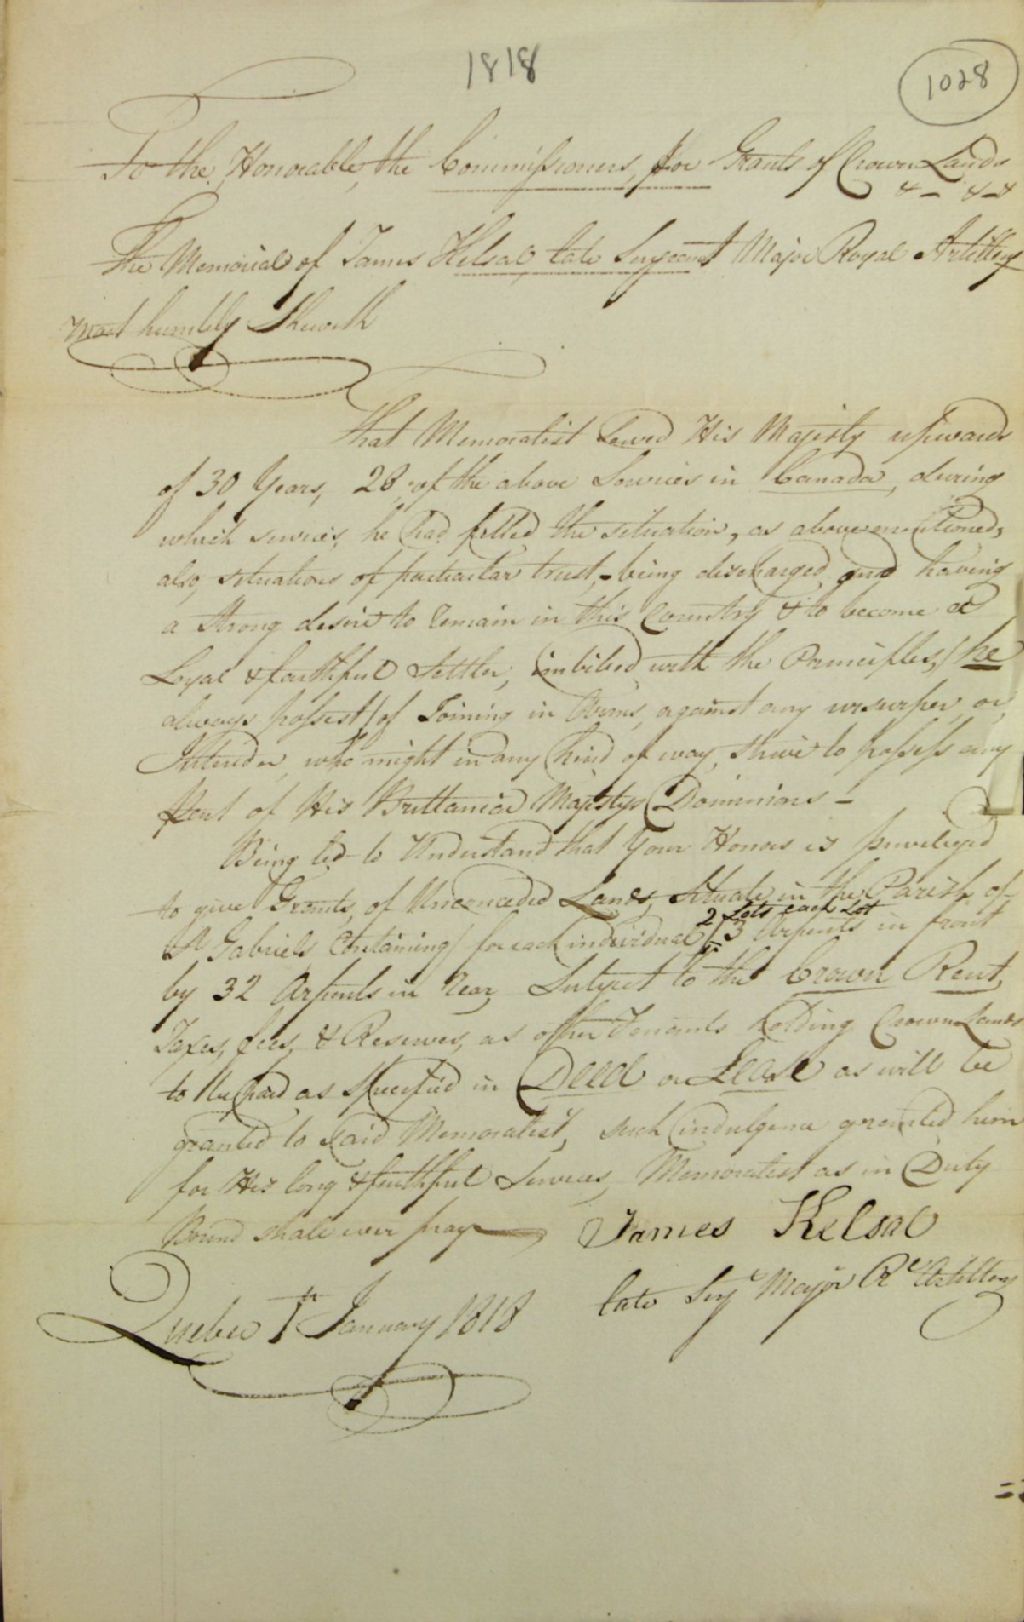 1818
1028
To the Honorable, the Commissioners, for Grants of Crown Lands
&- &-&
The Memorial of James Kelsal, late Sergeant Major Royal Artillery
Most humbly Sheweth
That Memorialist Served His Majesty upwards
of 30 Years, 28, of the above Services in Canada, during
which services, he had filled the situation, as above mentioned,
also, situations of particular trust, - being discharged, and having
a Strong desire to remain in this Country & to become a
Loyal & faithful Settler, imbibed with the Principles, / he
always possest / of Joining in Arms, against any ursurper, or
Intruder, who might in any kind of way, strive to possess any
Part of His Brittanica Majestys Dominions -
Being led to Understand that Your Honors is priviledged
to give Grants, of Unconceded Lands, Situate in the Parish of
2 Lots each Lot
St Gabriels Containing / for each individual / 3 Arpents in front
by 32 Arpents in Rear, Subject to the Crown Rent,
Taxes, fees, & Reserves, as other Tenants holding Crown Lands
to be paid as Specified in Deed or Lease as will be
granted to said Memorialist, such indulgence granted him
for His long & faithful Services, Memorialist as in Duty
Bound shall ever pray
James Kelsal
late Sergt Major Rl Artillery
Quebec 1st January 1818